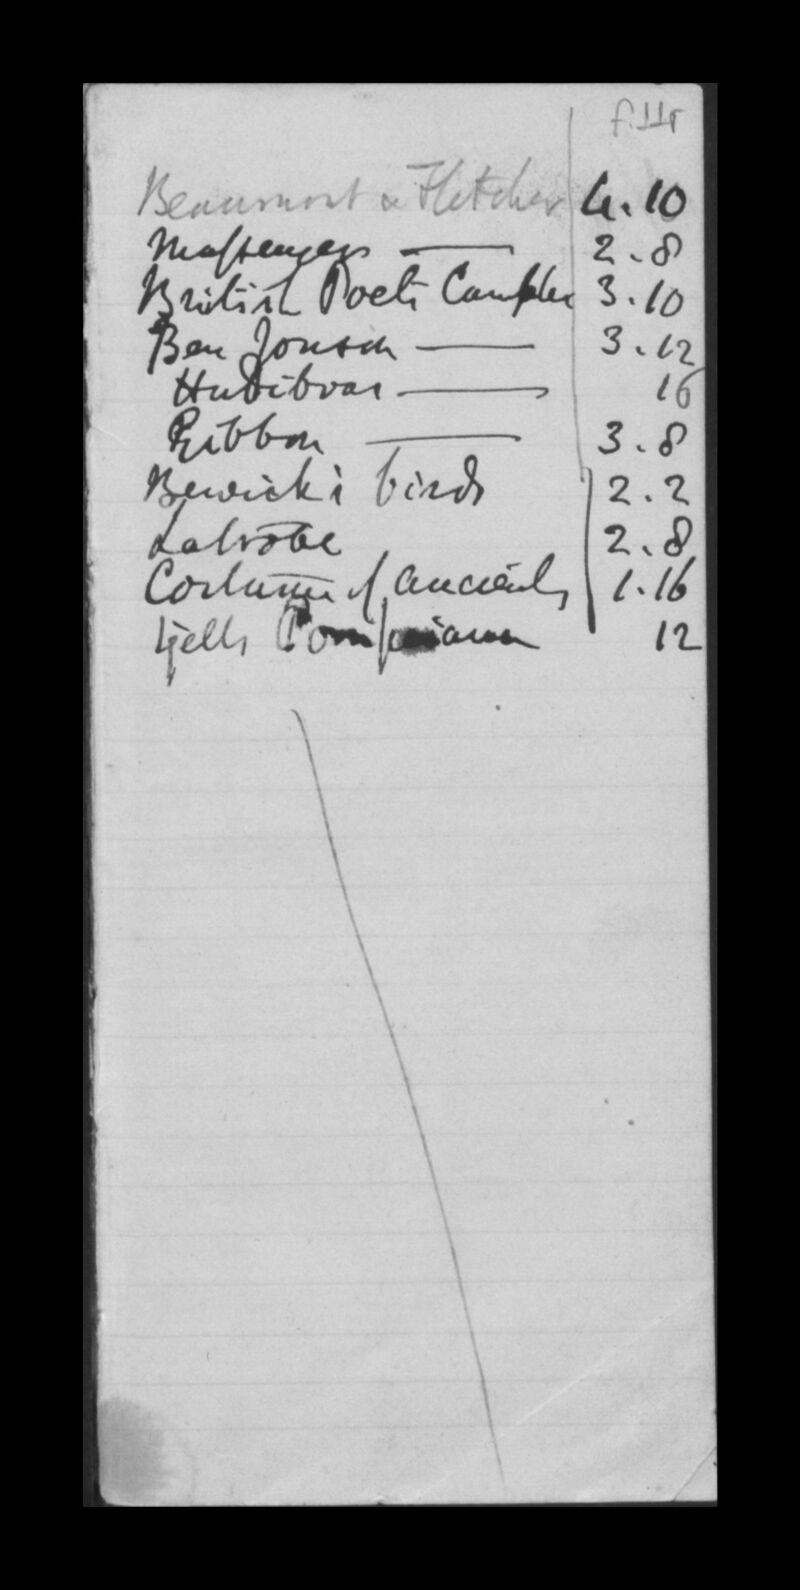 f.11r
Beaumont & Fletcher 4.10
Massengers — 2.8
British Poets Campbell 3.10
Ben Jonson — 3.12
Hudibras — 16
Gibbon — 3.8
Bewick's birds 2.2
Latrobe 2.8
Costume of ancients 1.16
Gells Pompeiana 12